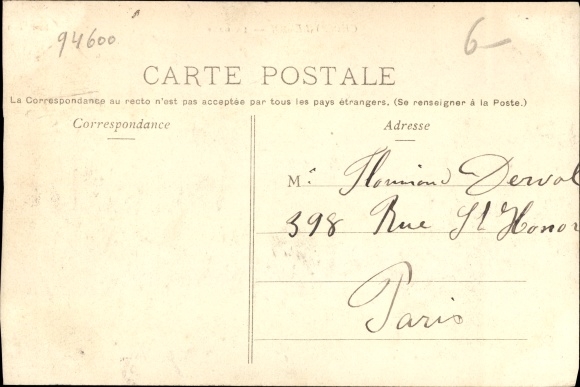 94600
6-
CARTE POSTALE
La Correspondance au recto n'est pas acceptée par tous les pays étrangers. (Se renseigner à la Poste.)
Correspondance
Adresse
Mr. Floumond Derval
398 Rue St Honor
Paris